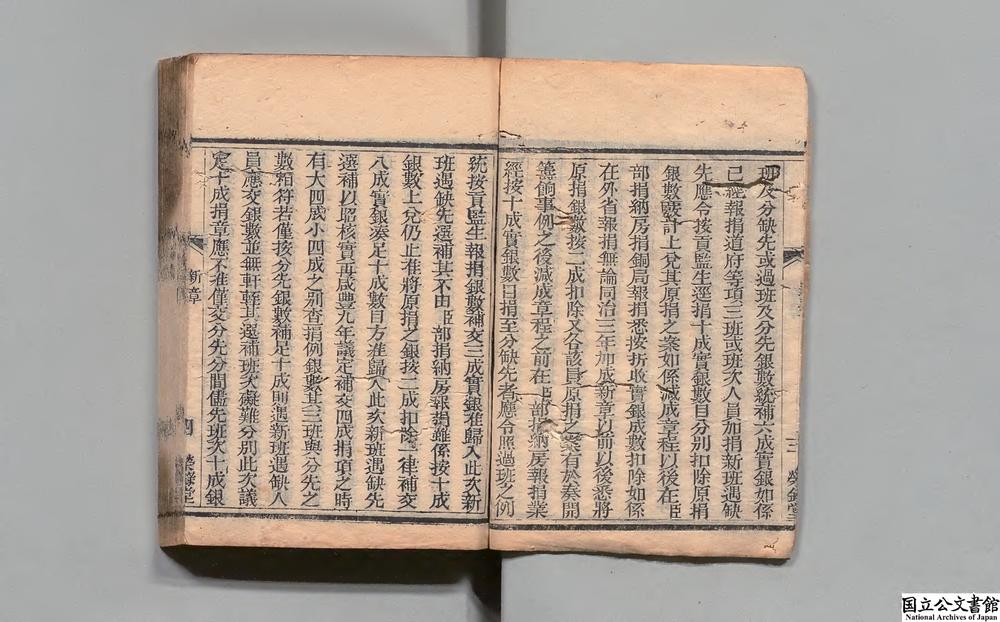 班及分缺先或過班及分先銀數統補六成實銀如係
已經報捐道府等項三班或班次人員加捐新班遇缺
先應令按貢監生逕捐十成實銀數目分別扣除原捐
銀數覈計上兌其原捐之案如係減成章程以後在臣
部捐納房捐銅局報捐悉按折收實銀成數扣除如係
在外省報捐無論同治三年加成新章以前以後悉將
原捐銀數按二成扣除又各該員原捐之案有於奏開
籌餉事例之後減成章程之前在臣部捐納房報捐業
經按十成實銀數目捐至分缺先者應令照過班之例
三 榮錄堂
統按貢監生報捐銀數補交三成實銀准歸入此次新
班遇缺先選補其不由臣部捐納房報捐雖係按十成
銀數上兌仍止准將原捐之銀按二成扣除一律補交
八成實銀湊足十成數目方准歸入此次新班遇缺先
選補以昭核實再咸豐九年議定補交四成捐項之時
有大四成小四成之別查捐例銀數其三班與分先之
數相符若僅按分先銀數補足十成則遇新班遇缺人
員應交銀數並無軒輊其選補班次礙難分別此次議
定十成捐章應不准僅交分先分間儘先班次十成銀
新章
四 榮錄堂
国立公文書館
National Archives of Japan